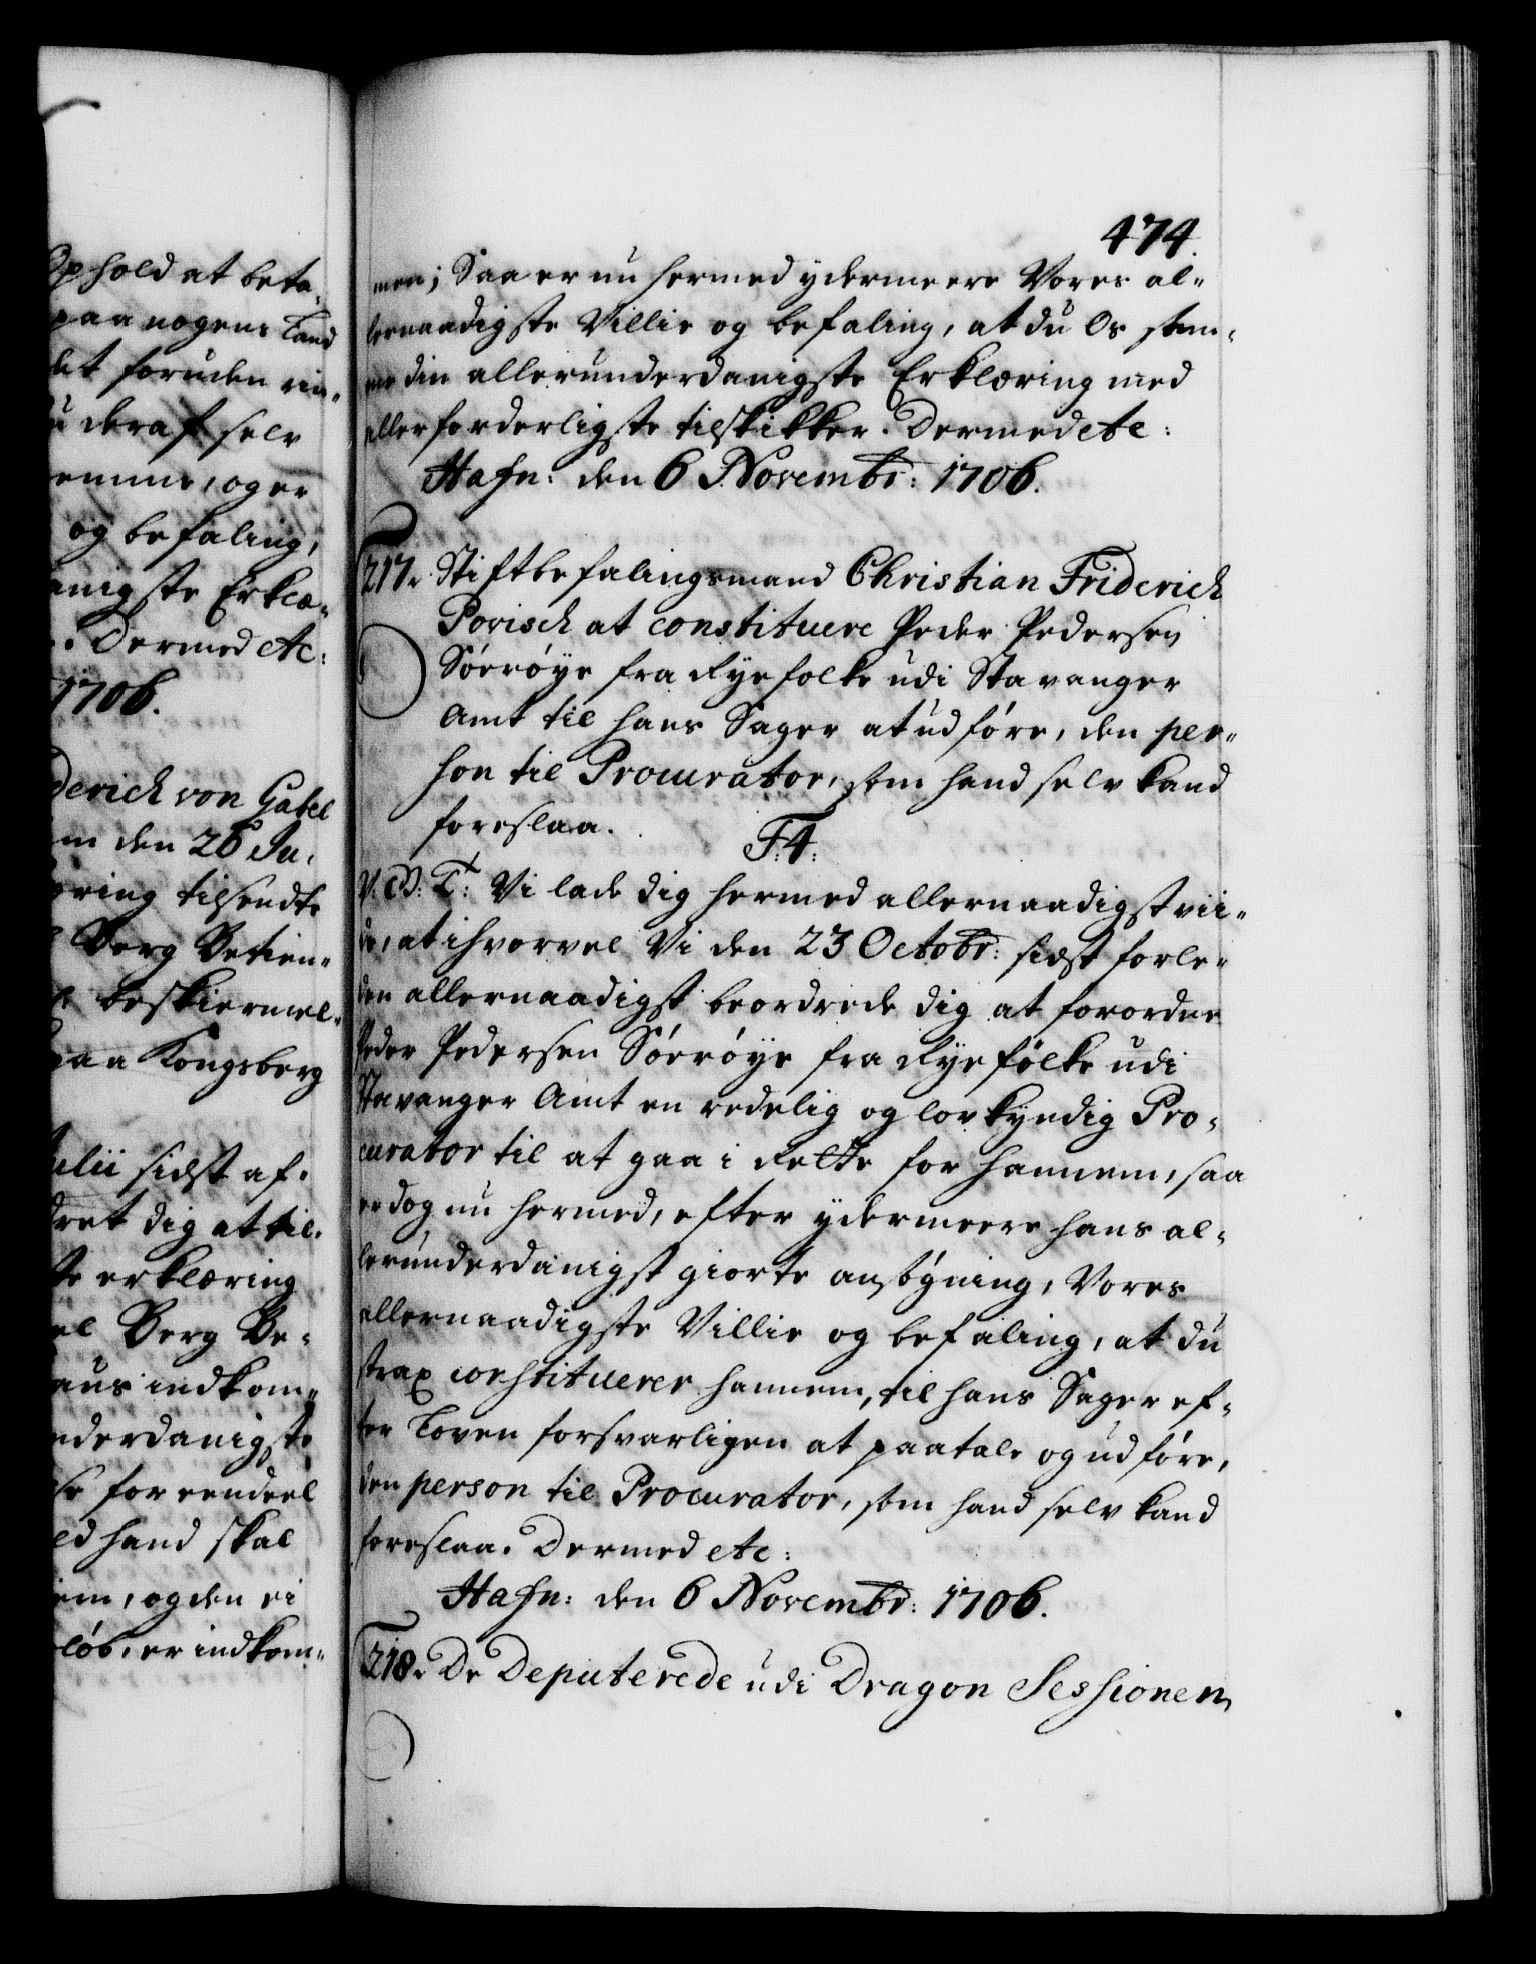 Ophold at beta-
paa nogens Land
let foruden rin-
u deraf selv
emme, og er
og befaling,
anigste Erklæ-
. Dermed etc:
1706.
derich von Gabel
m den 26 Ju-
ring tilsendte
Berg Betien-
beskiermel-
paa Kongsberg
ulii sidst af-
dret dig at til-
te erklæring
el Berg Be-
aus indkom-
nderdanigste
se for eendeel
ed hand skal
em, og den ei
løb, er indkom-
474.
men; Saa er nu hermed ydermeere Vores al-
lernaadigste Villie og befaling, at du Os sam-
me din allerunderdanigste Erklæring med
allerforderligste tilskikker. Dermed etc:
Hafn: den 6 Novembr: 1706.
217. Stiftbefalingsmand Christian Friderich
Povisch at constituere Peder Pedersen
Sörröye fra Ryefolke udi Stavanger
Amt til hans Sager at udföre, den per-
son til Procurator, som hand selv kand
foreslaa.
F: 4:
V. G: T: Vi lade dig hermed allernaadigst vii-
de, at ihvorvel Vi den 23 Octobr: sidst forle-
den allernaadigst beordrede dig at forordne
Peder Pedersen Sörröye fra Ryefölke udi
Stavanger Amt en redelig og lovkyndig Pro-
curator til at gaa i Rette for hannem, saa
er dog nu hermed, efter ydermeere hans al-
lerunderdanigst giorte ansögning, Vores
allernaadigste Villie og befaling, at du
strax constituerer hannem, til hans Sager ef-
ter Loven forsvarligen at paatale og udföre,
den person til Procurator, som hand selv kand
foreslaa. Dermed etc:
Hafn: den 6 Novembr: 1706.
218. De Deputerede udi Dragon Sessionen